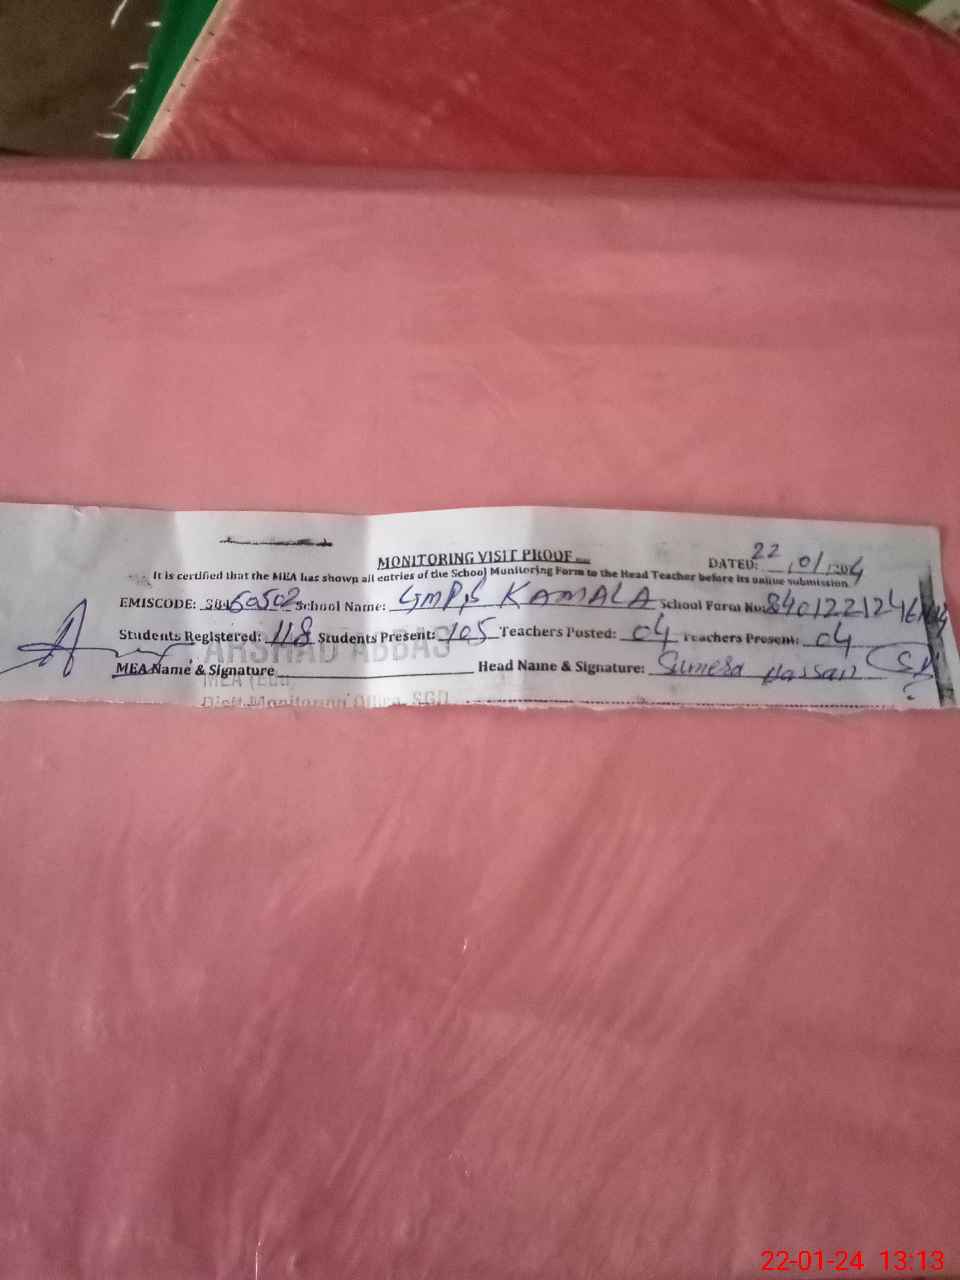 MONITORING VISIT PROOF
DATED: 22/01/2024
It is certified that the MEA has shown all entries of the School Monitoring Form to the Head Teacher before its online submission.
EMISCODE: 38460502 School Name: GMPS KAMALA School Form No:
Students Registered: 118 Students Present: 105 Teachers Posted: 04 Teachers Present: 04
ARSHAD ABBAS
MEA Name & Signature Head Name & Signature: Sumera Hassan
MEA (Edu)
Distt. Monitoring Office, SGD
22-01-24 13:13